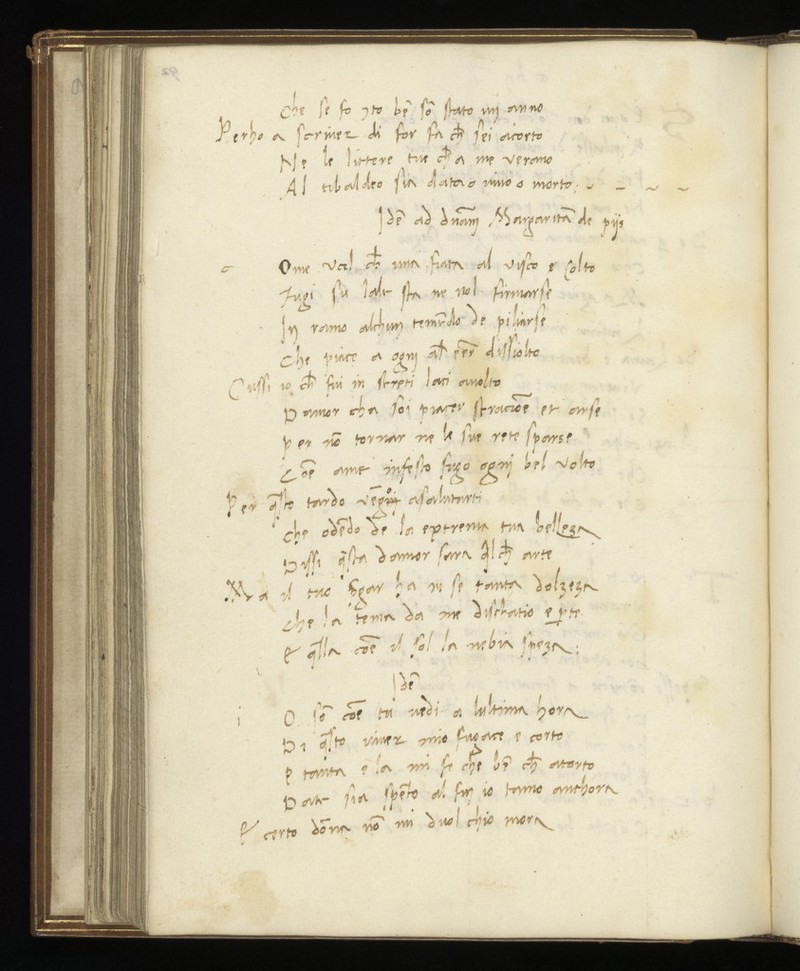 Che se fo ɔto bē sō stato iiij anno
Perho a scriver di for fa ch̄ sei acorto
Ne le littere tue ch̄ a me verano
Al tibaldeo sia data o vivo o morto:
Idē ad dnām Margaritā de pijs
Ome ucel ch̄ una fiata al visco e colto
Fugi su late sta ne vol firmarse
In ramo alchun temēdo de piliarse
Che piace a ogni al̄ eēr dissiolto
Cussi io ch̄ fui in streti laci avolto
Damor cha soi piacer stracioē et arse
per nō tornar ne le sue rete sparse
Coē ame infesto fugo ogni bel volto
Per q̄sto tardo vēgo asalutarti
che odēdo de la extrema tua belleza
Dissi q̄sta damor sara q̄lch̄ arte
Ma il tuo sgar ha in se tanta dolzeza
Che la tema da me discatio e pte
& q̄lla coē il sol la nebia speza:
Idē
i O sō coē tu vedi a lultima hora
Di q̄sto viver mio fugace e corto
E tanta e la mi fe che bē ch̄ atorto
Date sia spēto al fin io tamo anchora
& certo dōna nō mi duol chio mora